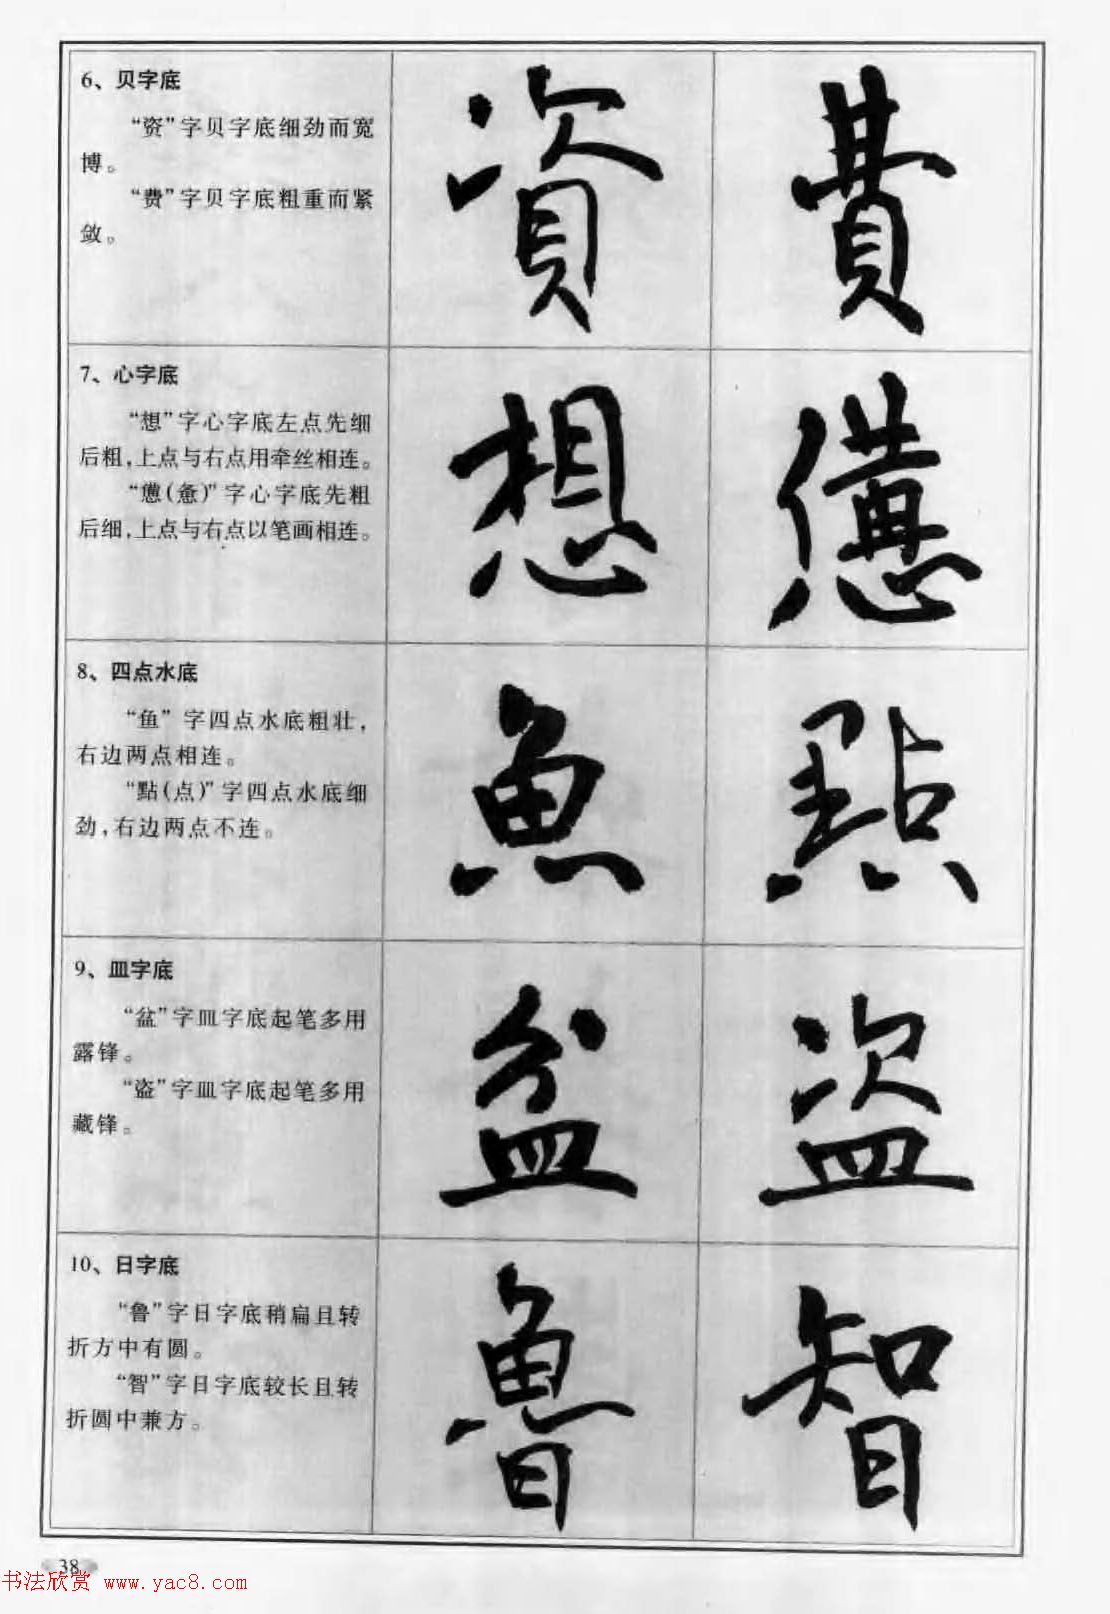 6、贝字底
“资”字贝字底细劲而宽
博。
“费”字贝字底粗重而紧
敛。
資
費
7、心字底
“想”字心字底左点先细
后粗,上点与右点用牵丝相连。
“憊(惫)”字心字底先粗
后细,上点与右点以笔画相连。
想
憊
8、四点水底
“鱼”字四点水底粗壮,
右边两点相连。
“點(点)”字四点水底细
劲,右边两点不连。
魚
點
9、皿字底
“盆”字皿字底起笔多用
露锋。
“盗”字皿字底起笔多用
藏锋。
盆
盗
10、日字底
“鲁”字日字底稍扁且转
折方中有圆。
“智”字日字底较长且转
折圆中兼方。
魯
智
38
书法欣赏 www.yac8.com